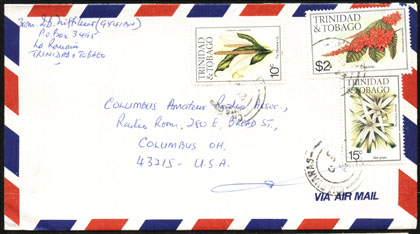 From:
P.O Box 3445
La Romain
TRINIDAD & TOBAGO
TRINIDAD
& TOBAGO
10c
TRINIDAD
& TOBAGO
$2
TRINIDAD
& TOBAGO
15c
COLUMBUS Amateur Radio Assoc.,
Radio Room, 280 E. BROAD ST,
COLUMBUS OH.
43215 - U.S.A.
VIA AIR MAIL